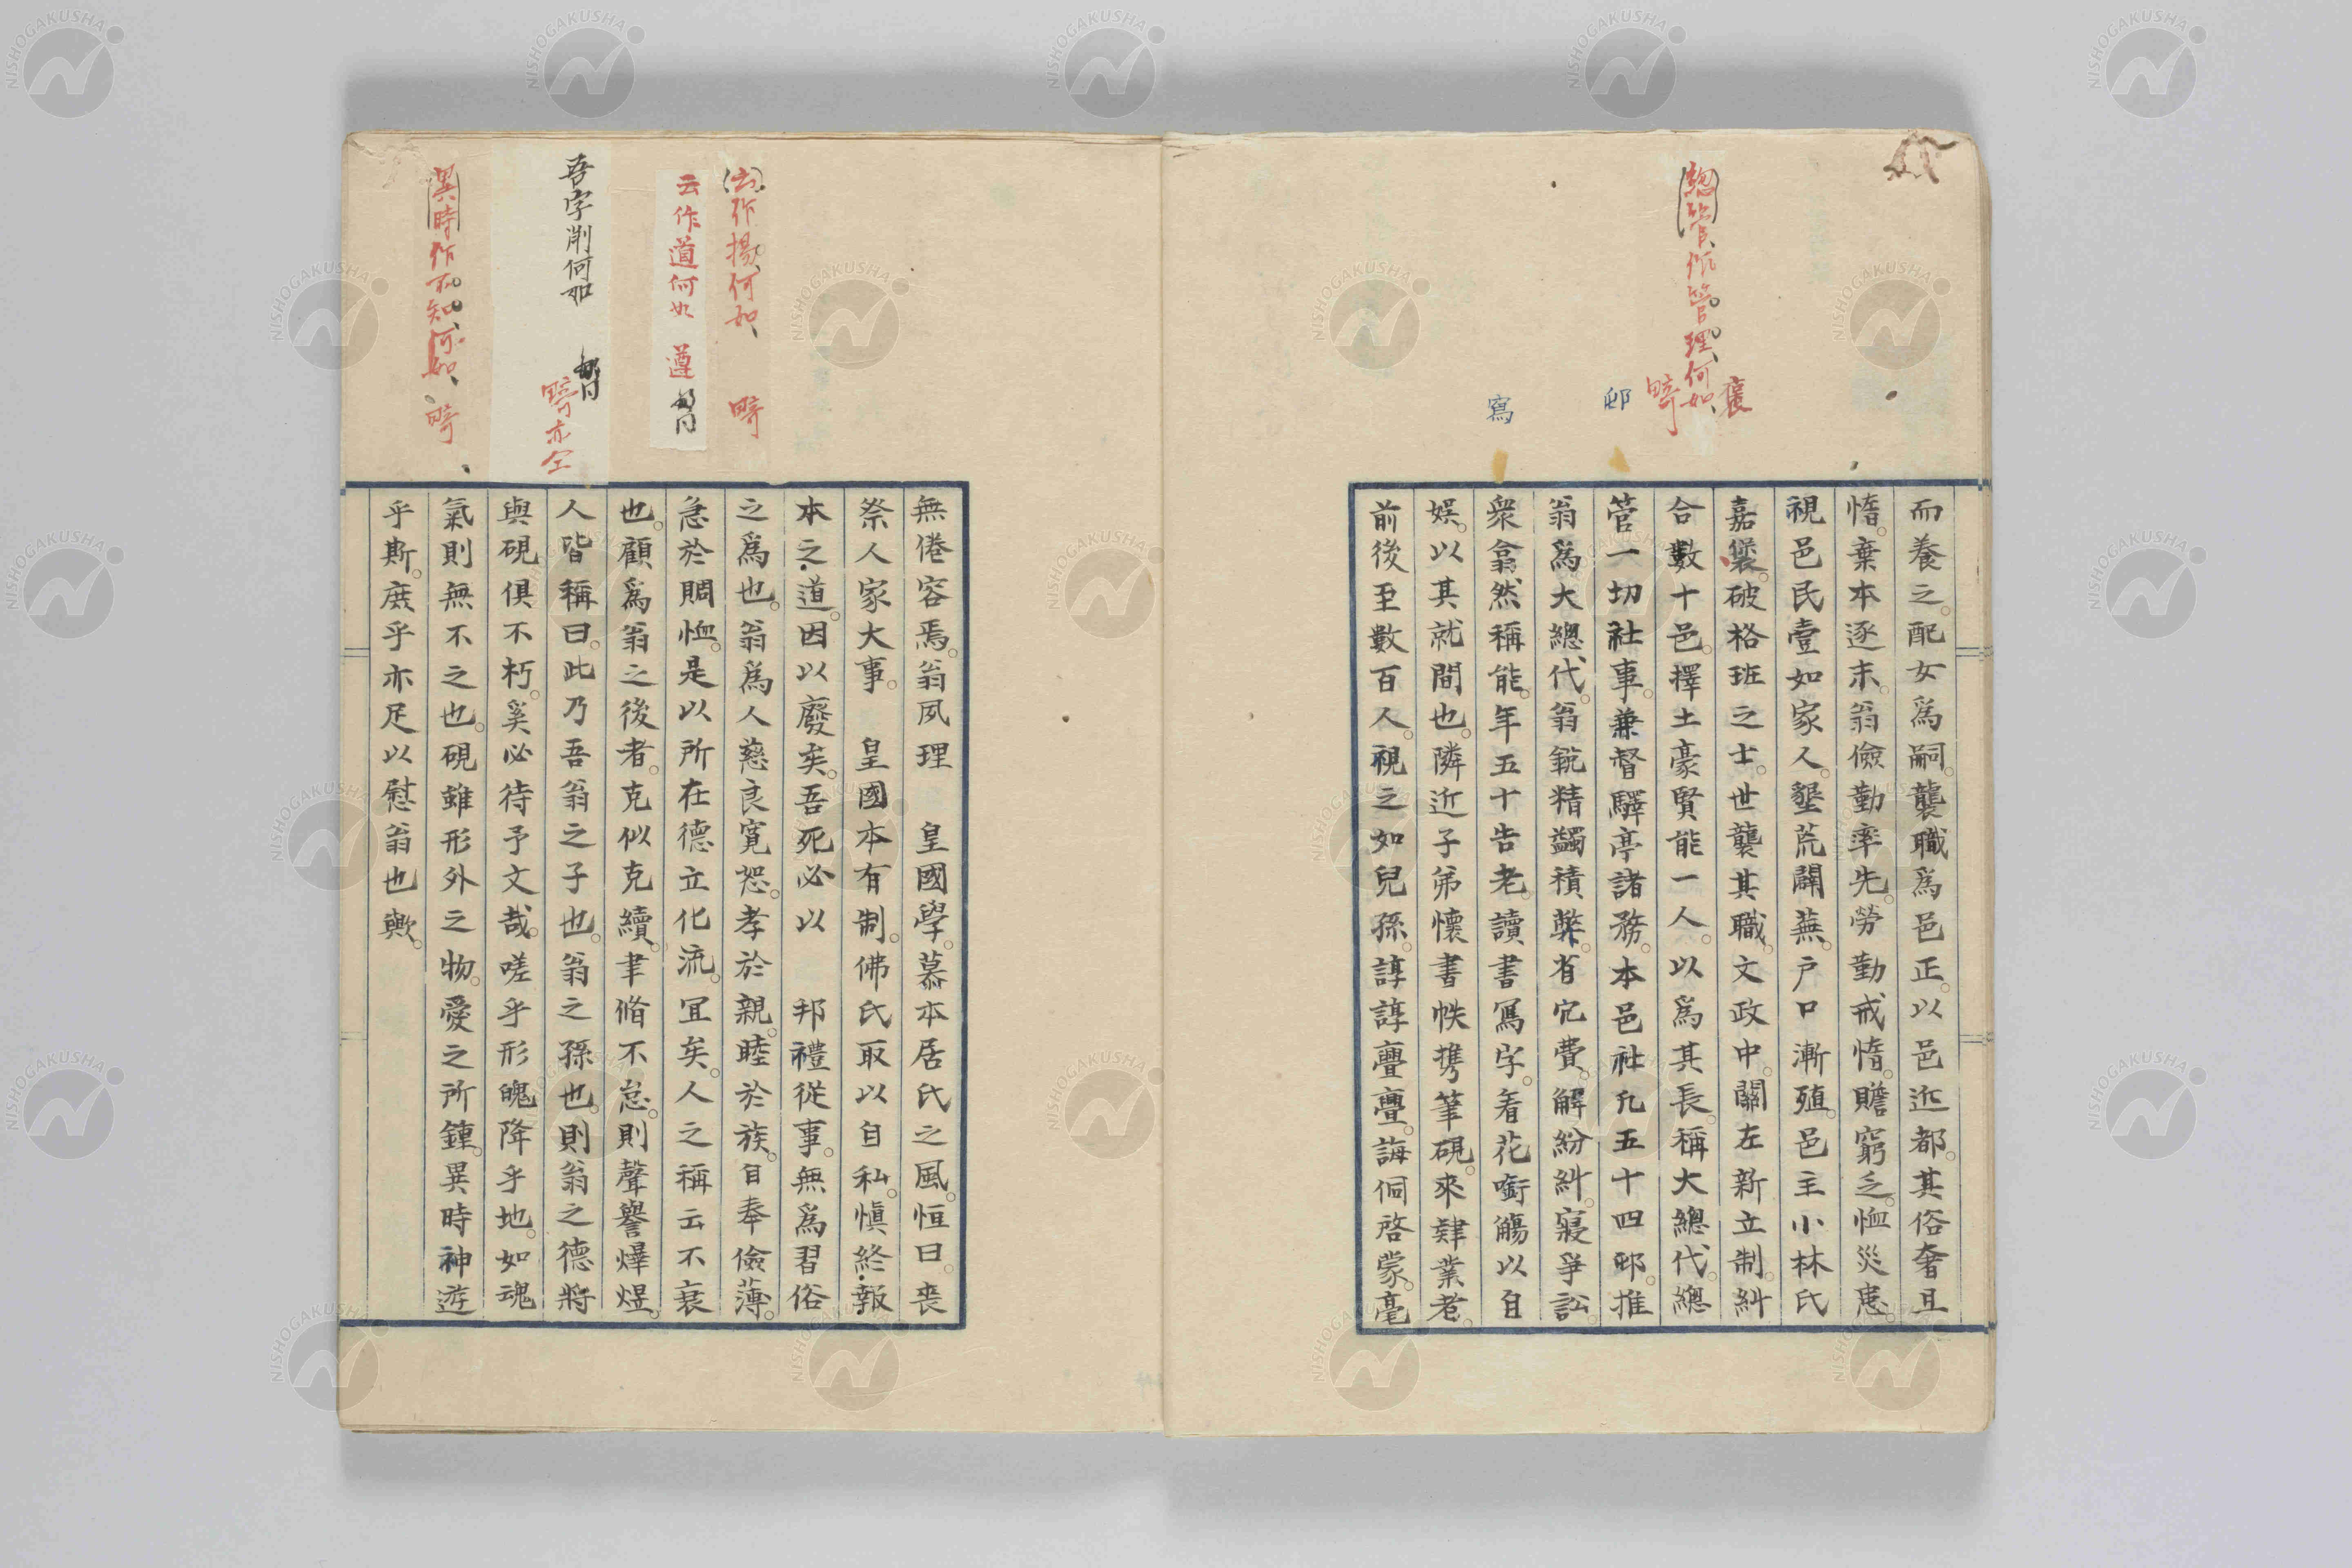 總管作管理何如
褒
畸
邨
寫
而養之。配女爲嗣。襲職爲邑正。以邑近都。其俗奢且
惰。棄本逐末。翁儉勤率先。勞勤戒惰。贍窮乏。恤災患。
視邑民壹如家人。墾荒闢蕪。戶口漸殖。邑主小林氏
嘉襃。破格班之士。世襲其職。文政中。關左新立制。糾
合數十邑。擇土豪賢能一人。以爲其長。稱大總代。總
管一切社事。兼督驛亭諸務。本邑社凡五十四邨。推
翁爲大總代。翁銳精蠲積弊。省冗費。解紛糾。寢爭訟。
衆翕然稱能。年五十告老。讀書寫字。看花銜觴以自
娛。以其就閒也。隣近子弟懷書帙携筆硯。來肄業者。
前後至數百人。視之如兒孫。諄諄亹亹。誨侗啓蒙。毫
云作揚何如、 畸
云作道何如 遵
吾字削何如
畸亦仝
異時作不知何如、 畸
無倦容焉。翁夙理 皇國學。慕本居氏之風。恒曰。喪
祭人家大事。 皇國本有制。佛氏取以自私。愼終報
本之道。因以廢矣。吾死必以 邦禮從事。無爲習俗
之爲也。翁爲人慈良寬恕。孝於親。睦於族。自奉儉薄。
急於賙恤。是以所在德立化流。宜矣。人之稱云不衰
也。顧爲翁之後者。克似克續。聿脩不怠。則聲譽爗煜。
人皆稱曰。此乃吾翁之子也。翁之孫也。則翁之德將
與硯俱不朽。奚必待予文哉。嗟乎形魄降乎地。如魂
氣則無不之也。硯雖形外之物。愛之所鍾。異時神遊
乎斯。庶乎亦足以慰翁也歟。